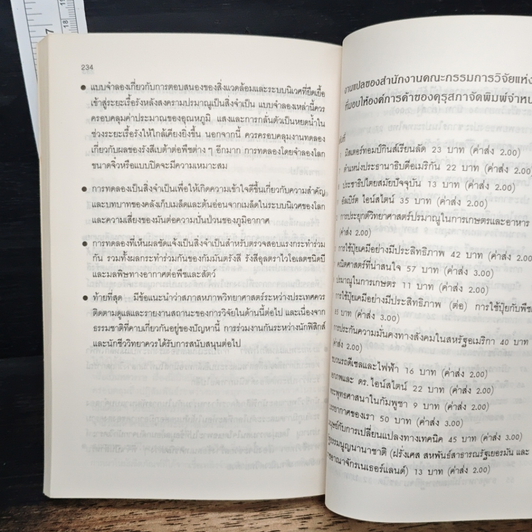 234
● แบบจำลองเกี่ยวกับการตอบสนองของสิ่งแวดล้อมและระบบนิเวศที่ยืดเยื้อ
เข้าสู่ระยะเรื้อรังหลังสงครามปรมาณูเป็นสิ่งจำเป็น แบบจำลองเหล่านี้ควร
ครอบคลุมค่าประมาณของอุณหภูมิ แสงและการกลั่นตัวเป็นหยดน้ำใน
ช่วงระยะเรื้อรังให้ใกล้เคียงยิ่งขึ้น นอกจากนี้ ควรครอบคลุมงานทดลอง
เกี่ยวกับผลของรังสีเบต้าต่อพืชต่าง ๆ อีกมาก การทดลองโดยจำลองโลก
ขนาดจิ๋วหรือแบบปิดจะมีความเหมาะสม
● การทดลองเป็นสิ่งจำเป็นเพื่อให้เกิดความเข้าใจดีขึ้นเกี่ยวกับความสำคัญ
และบทบาทของคลังเก็บเมล็ดและต้นอ่อนจากเมล็ดในระบบนิเวศของโลก
และความเสี่ยงของมันต่อความปั่นป่วนของภูมิอากาศ
● การทดลองที่เห็นผลชัดแจ้งเป็นสิ่งจำเป็นสำหรับตรวจสอบแรงกระทำร่วม
กัน รวมทั้งผลกระทำร่วมกันของกัมมันตรังสี รังสีอุลตราไวโอเลตชนิดบี
และมลพิษทางอากาศต่อพืชและสัตว์
● ท้ายที่สุด มีข้อแนะนำว่าสภาสหภาพวิทยาศาสตร์ระหว่างประเทศควร
ติดตามดูแลและรายงานสถานะของการวิจัยในด้านนี้ต่อไป และเนื่องจาก
ธรรมชาติที่คาบเกี่ยวกันอยู่ของปัญหานี้ การร่วมงานกันระหว่างนักฟิสิกส์
และนักชีววิทยาควรได้รับการสนับสนุนต่อไป
งานแปลของสำนักงานคณะกรรมการวิจัยแห่ง
ที่มอบให้องค์การค้าของคุรุสภาจัดพิมพ์จำหน
มิสเตอร์ทอมป์กินส์เรียนลัด 23 บาท (ค่าส่ง 2.00)
ตำแหน่งประธานาธิบดีอเมริกัน 22 บาท (ค่าส่ง 2.00)
ประชาธิปไตยสมัยปัจจุบัน 13 บาท (ค่าส่ง 2.00)
อัลเบิร์ต ไอน์สไตน์ 35 บาท (ค่าส่ง 2.00)
การประยุกต์วิทยาศาสตร์ปรมาณูในการเกษตรและอาหาร
(ค่าส่ง 2.00)
การใช้ปุ๋ยเคมีอย่างมีประสิทธิภาพ 42 บาท (ค่าส่ง 2.00)
คณิตศาสตร์ที่น่าสนใจ 57 บาท (ค่าส่ง 3.00)
ปรมาณูในการเกษตร 11 บาท (ค่าส่ง 2.00)
การใช้ปุ๋ยเคมีอย่างมีประสิทธิภาพ (ต่อ) การใช้ปุ๋ยกับพืช
(ค่าส่ง 2.00)
การประกันความมั่นคงทางสังคมในสหรัฐอเมริกา 40 บาท
(ค่าส่ง 2.00)
รถดีเซลและไฟฟ้า 16 บาท (ค่าส่ง 2.00)
และ ดร.ไอน์สไตน์ 22 บาท (ค่าส่ง 2.00)
พระพุทธศาสนาในกัมพูชา 9 บาท (ค่าส่ง 2.00)
อากาศของเรา 50 บาท (ค่าส่ง 3.00)
มนุษย์กับการเปลี่ยนแปลงทางเทคนิค 45 บาท (ค่าส่ง 3.00)
รัฐธรรมนูญนานาชาติ (ฝรั่งเศส สหพันธ์สาธารณรัฐเยอรมัน และ
ราชอาณาจักรเนเธอร์แลนด์) 13 บาท (ค่าส่ง 2.00)